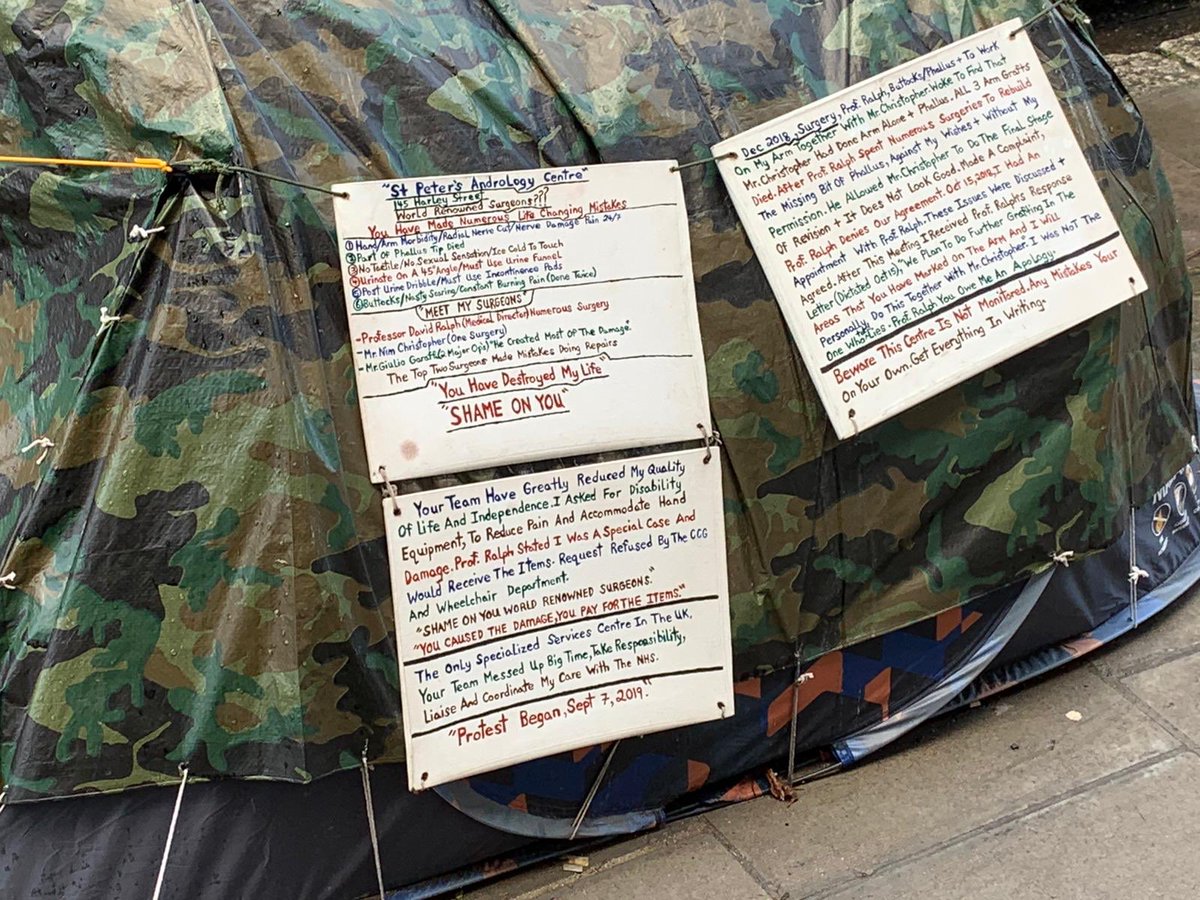 "St Peter's Andrology Centre"
145 Harley Street
World Renowned Surgeons???
You Have Made Numerous Life Changing Mistakes
① Hand/Arm Morbidity/Radial Nerve Cut/Nerve Damage Pain 24/7
② Part Of Phallus Tip Died
③ No Tactile/No Sexual Sensation/Ice Cold To Touch
④ Urinate On A 45° Angle/Must Use Urine Funnel
⑤ Post Urine Dribble/Must Use Incontinence Pads
⑥ Buttocks/Nasty Scaring/Constant Burning Pain (Done Twice)
MEET MY SURGEONS
-Professor David Ralph (Medical Director) Numerous Surgery
-Mr. Nim Christopher (One Surgery)
-Mr. Giulio Garaffa (2 Major Op's) "He Created Most Of The Damage".
The Top Two Surgeons Made Mistakes Doing Repairs
"You Have Destroyed My Life
"SHAME ON YOU"
Your Team Have Greatly Reduced My Quality
Of Life And Independence. I Asked For Disability
Equipment, To Reduce Pain And Accommodate Hand
Damage. Prof. Ralph Stated I Was A Special Case And
Would Receive The Items. Request Refused By The CCG
And Wheelchair Department.
"SHAME ON YOU WORLD RENOWNED SURGEONS."
"YOU CAUSED THE DAMAGE, YOU PAY FOR THE ITEMS."
The Only Specialized Services Centre In The UK.
Your Team Messed Up Big Time, Take Responsibility,
Liaise And Coordinate My Care With The NHS.
"Protest Began, Sept 7, 2019."
Dec 2018, Surgery, Prof. Ralph, Buttocks/Phallus + To Work
On My Arm Together With Mr. Christopher. Woke To Find That
Mr. Christopher Had Done Arm Alone + Phallus. ALL 3 Arm Grafts
Died. After Prof. Ralph Spent Numerous Surgeries To Rebuild
The Missing Bit Of Phallus. Against My Wishes + Without My
Permission. He Allowed Mr. Christopher To Do The Final Stage
Of Revision + It Does Not Look Good. Made A Complaint,
Prof. Ralph Denies Our Agreement. Oct 15, 2018, I Had An
Appointment With Prof. Ralph. These Issues Were Discussed +
Agreed. After This Meeting I Received Prof. Ralph's Response
Letter (Dictated Oct 15), "We Plan To Do Further Grafting In The
Areas That You Have Marked On The Arm And I Will
Personally, Do This Together With Mr. Christopher. I Was Not The
One Who Lies. Prof. Ralph You Owe Me An Apology.
Beware This Centre Is Not Monitored. Any Mistakes Your
On Your Own. Get Everything In Writing.